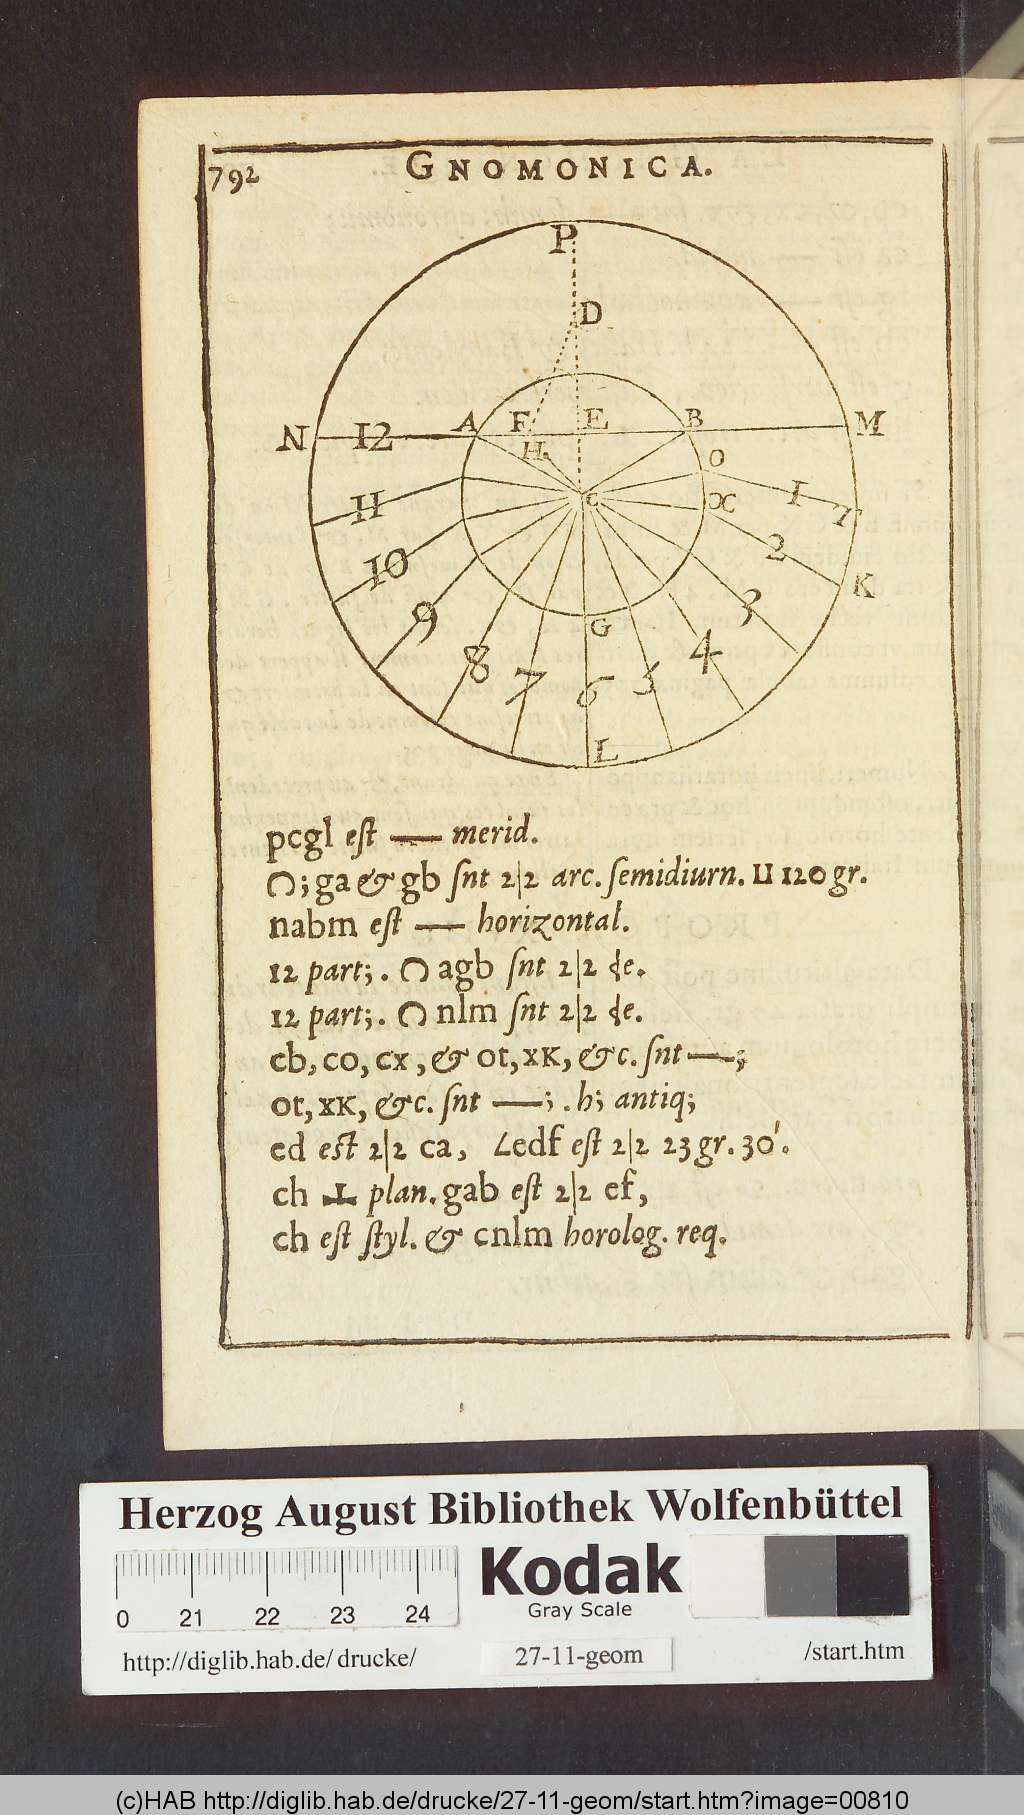 792 GNOMONICA.
P
D
N 12 A F E B M
H O
C
11 X 1 T
10 2 K
9 3
G
8 7 6 5 4
L
pcgl est — merid.
∩; ga & gb snt 2|2 arc. semidiurn. ⊔ 120 gr.
nabm est — horizontal.
12 part;. ∩ agb snt 2|2 de.
12 part;. ∩ nlm snt 2|2 de.
cb, co, cx, & ot, xK, &c. snt —;
ot, xK, &c. snt —; . h; antiq;
ed est 2|2 ca, ∠edf est 2|2 23 gr. 30'.
ch ⊥ plan. gab est 2|2 ef,
ch est styl. & cnlm horolog. req.
Herzog August Bibliothek Wolfenbüttel
Kodak
Gray Scale
0 21 22 23 24
http://diglib.hab.de/drucke/ 27-11-geom /start.htm
(c)HAB http://diglib.hab.de/drucke/27-11-geom/start.htm?image=00810